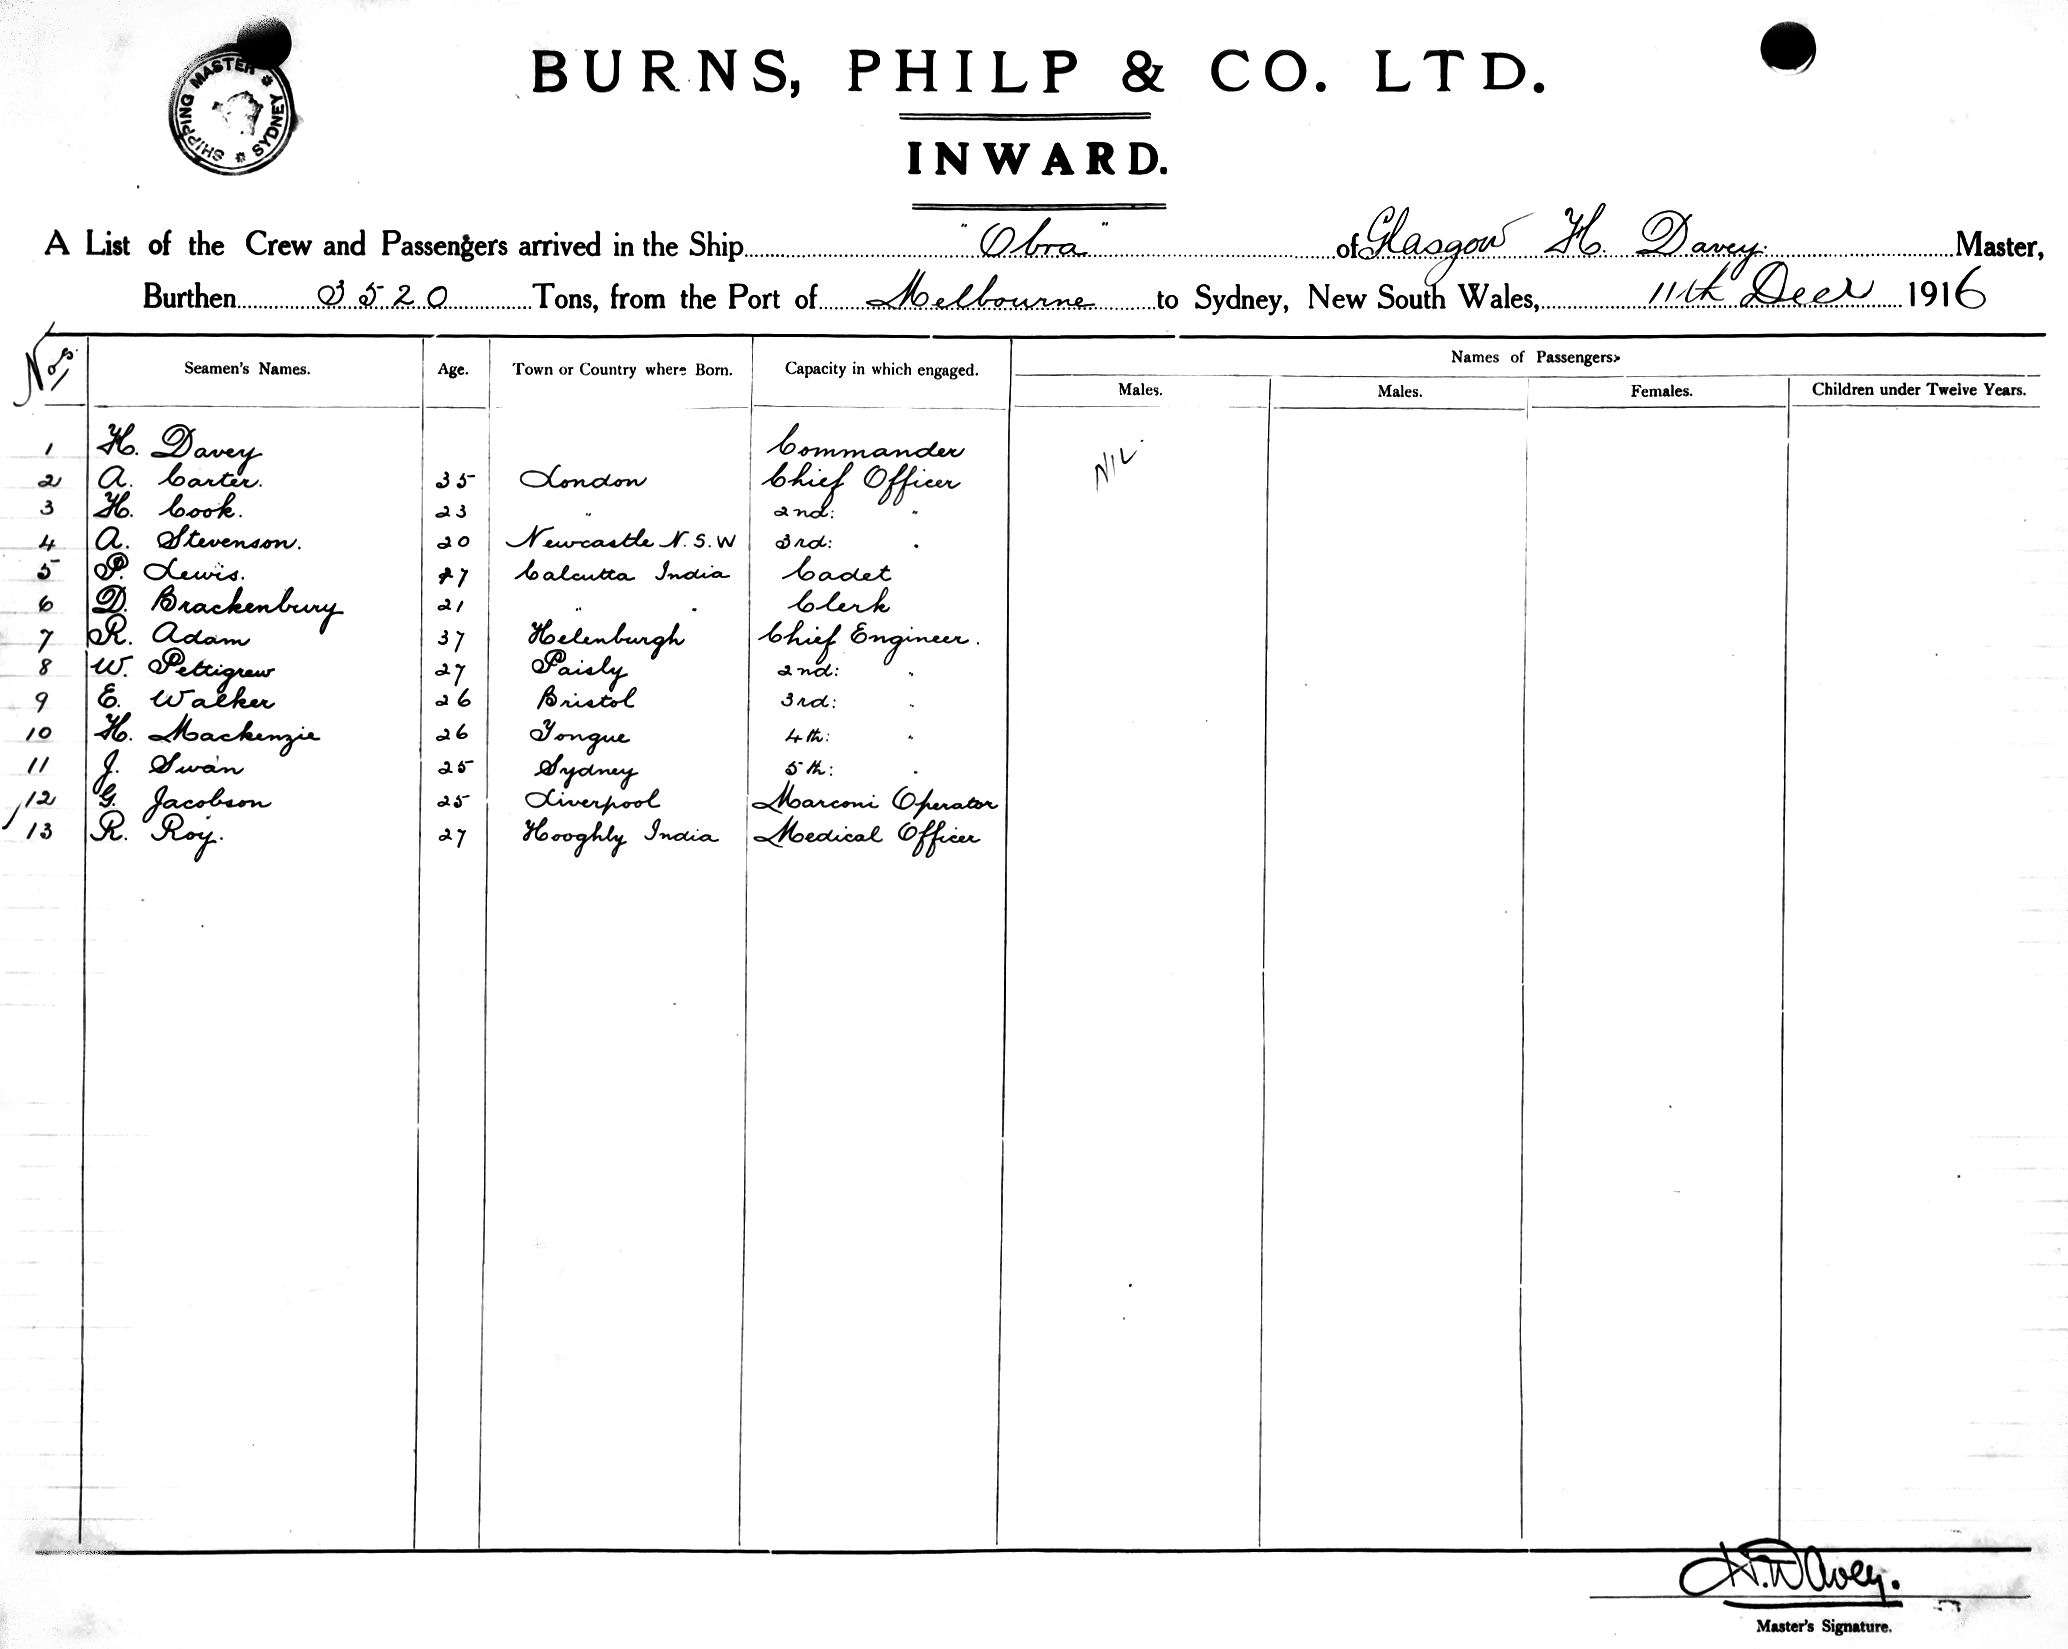 SHIPPING MASTER * SYDNEY *
BURNS, PHILP & CO. LTD.
INWARD.
A List of the Crew and Passengers arrived in the Ship "Obra" of Glasgow H. Davey. Master,
Burthen 3520 Tons, from the Port of Melbourne to Sydney, New South Wales, 11th Decr 1916
Nos. Seamen's Names. Age. Town or Country where Born. Capacity in which engaged. Names of Passengers
Males. Males. Females. Children under Twelve Years.
1 H. Davey Commander NIL
2 A. Carter. 35 London Chief Officer
3 H. Cook. 23 " 2nd: "
4 A. Stevenson. 20 Newcastle N.S.W 3rd: "
5 P. Lewis. 27 Calcutta India Cadet
6 D. Brackenbury 21 " " Clerk
7 R. Adam 37 Helenburgh Chief Engineer.
8 W. Pettigrew 27 Paisly 2nd: "
9 E. Walker 26 Bristol 3rd: "
10 H. Mackenzie 26 Tongue 4th: "
11 J. Swan 25 Sydney 5th: "
12 G. Jacobson 25 Liverpool Marconi Operator
13 R. Roy. 27 Hooghly India Medical Officer
H. Davey.
Master's Signature.